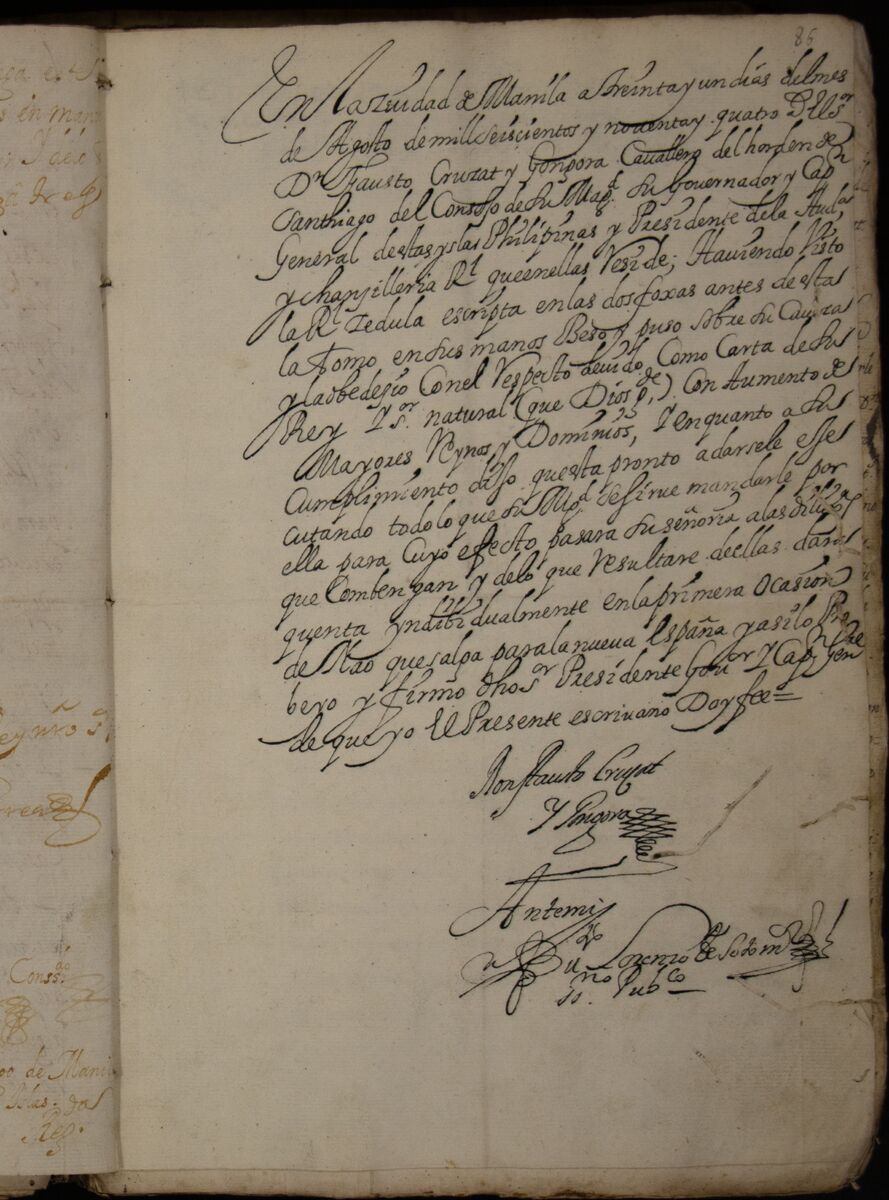 86
En La ziudad de Manila a treinta y un dias del mes
de Agosto de mill seiscientos y noventa y quatro El Sor
Dn Fausto Cruzat y Gongora Cavallero del horden de
Santhiago del Consejo de su Magd. su Governador y Capn
General de estas yslas Philipinas y Presidente de la Auda
y chanzilleria Rl que en ellas Reside; Haviendo Visto
la Rl Zedula escripta en las dos foxas antes de esta
la tomo en sus manos Beso y puso sobre su Caveza
y la obedezio Con el Respecto devido Como Carta de su
Rey y Sor natural (que Dios gde) Con Aumento de
Mayores Reynos y Dominios, y en quanto a su
Cumplimiento dijo questa pronto a darsele esse
cutando todo lo que su Magd se sirve mandarle por
ella para Cuyo efecto pasara su señoria a las diligas
que Combengan y de lo que Resultare de ellas dara
quenta yndibidualmente en la primera ocasion
de Nao que salpa para la nueva España y asi lo Pro
beyo y firmo dho Sor Presidente Govor y Capn Gene
de que yo El Presente escrivano Doy fee=
Don fausto Cruzat
Y Gongora
Antemi
Lorenzo de
no Pubco
Conss
de Mani